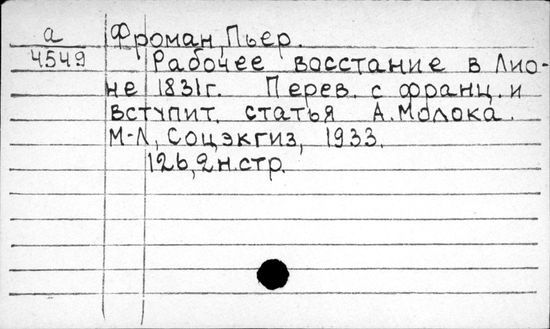 а Фроман, Пьер.
4549 Рабочее восстание в Лио-
не 1831г. Перев. с франц. и
вступит. статья А. Молока.
М-Л, Соцэкгиз, 1933.
126, 2 н.стр.